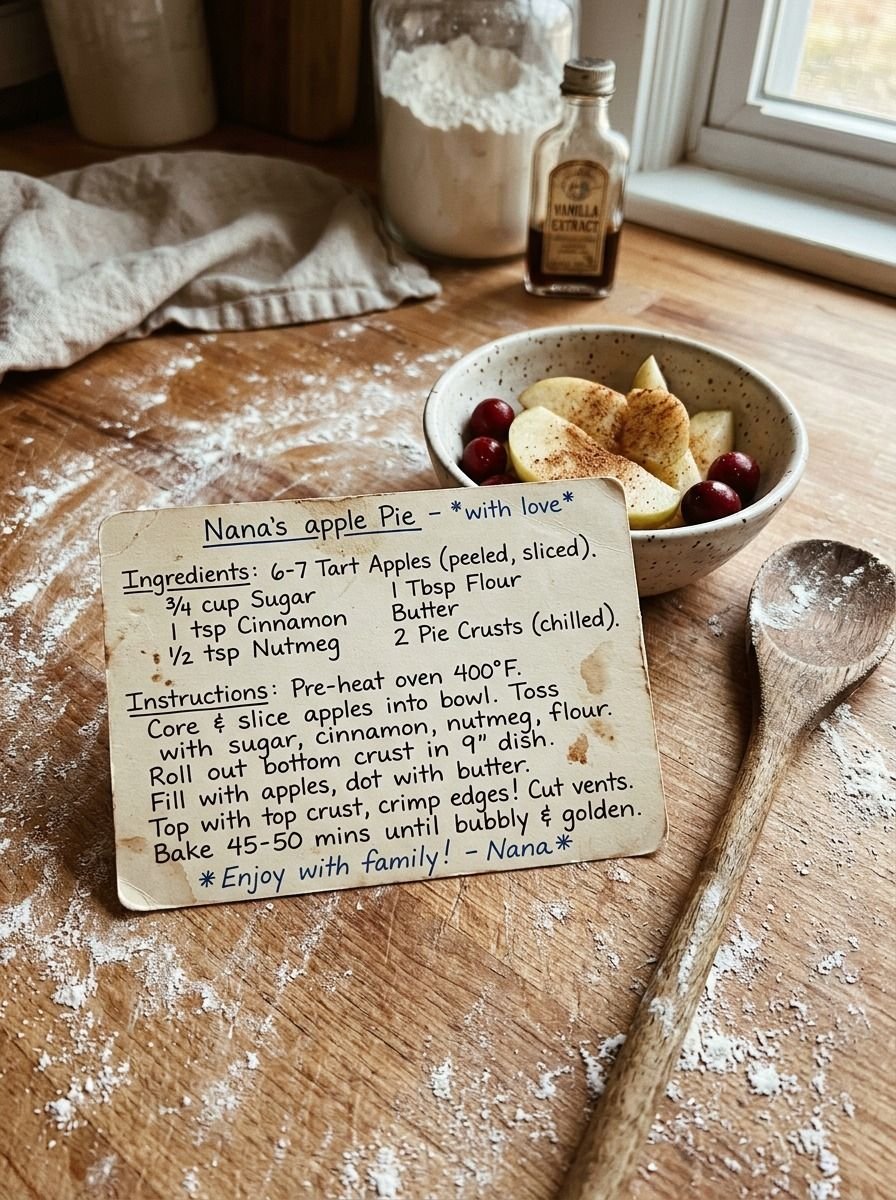 VANILLA
EXTRACT
Nana's apple Pie - *with love*
Ingredients: 6-7 Tart Apples (peeled, sliced).
3/4 cup Sugar
1 tsp Cinnamon
1/2 tsp Nutmeg
1 Tbsp Flour
Butter
2 Pie Crusts (chilled).
Instructions: Pre-heat oven 400°F.
Core & slice apples into bowl. Toss
with sugar, cinnamon, nutmeg, flour.
Roll out bottom crust in 9" dish.
Fill with apples, dot with butter.
Top with top crust, crimp edges! Cut vents.
Bake 45-50 mins until bubbly & golden.
*Enjoy with family! - Nana*